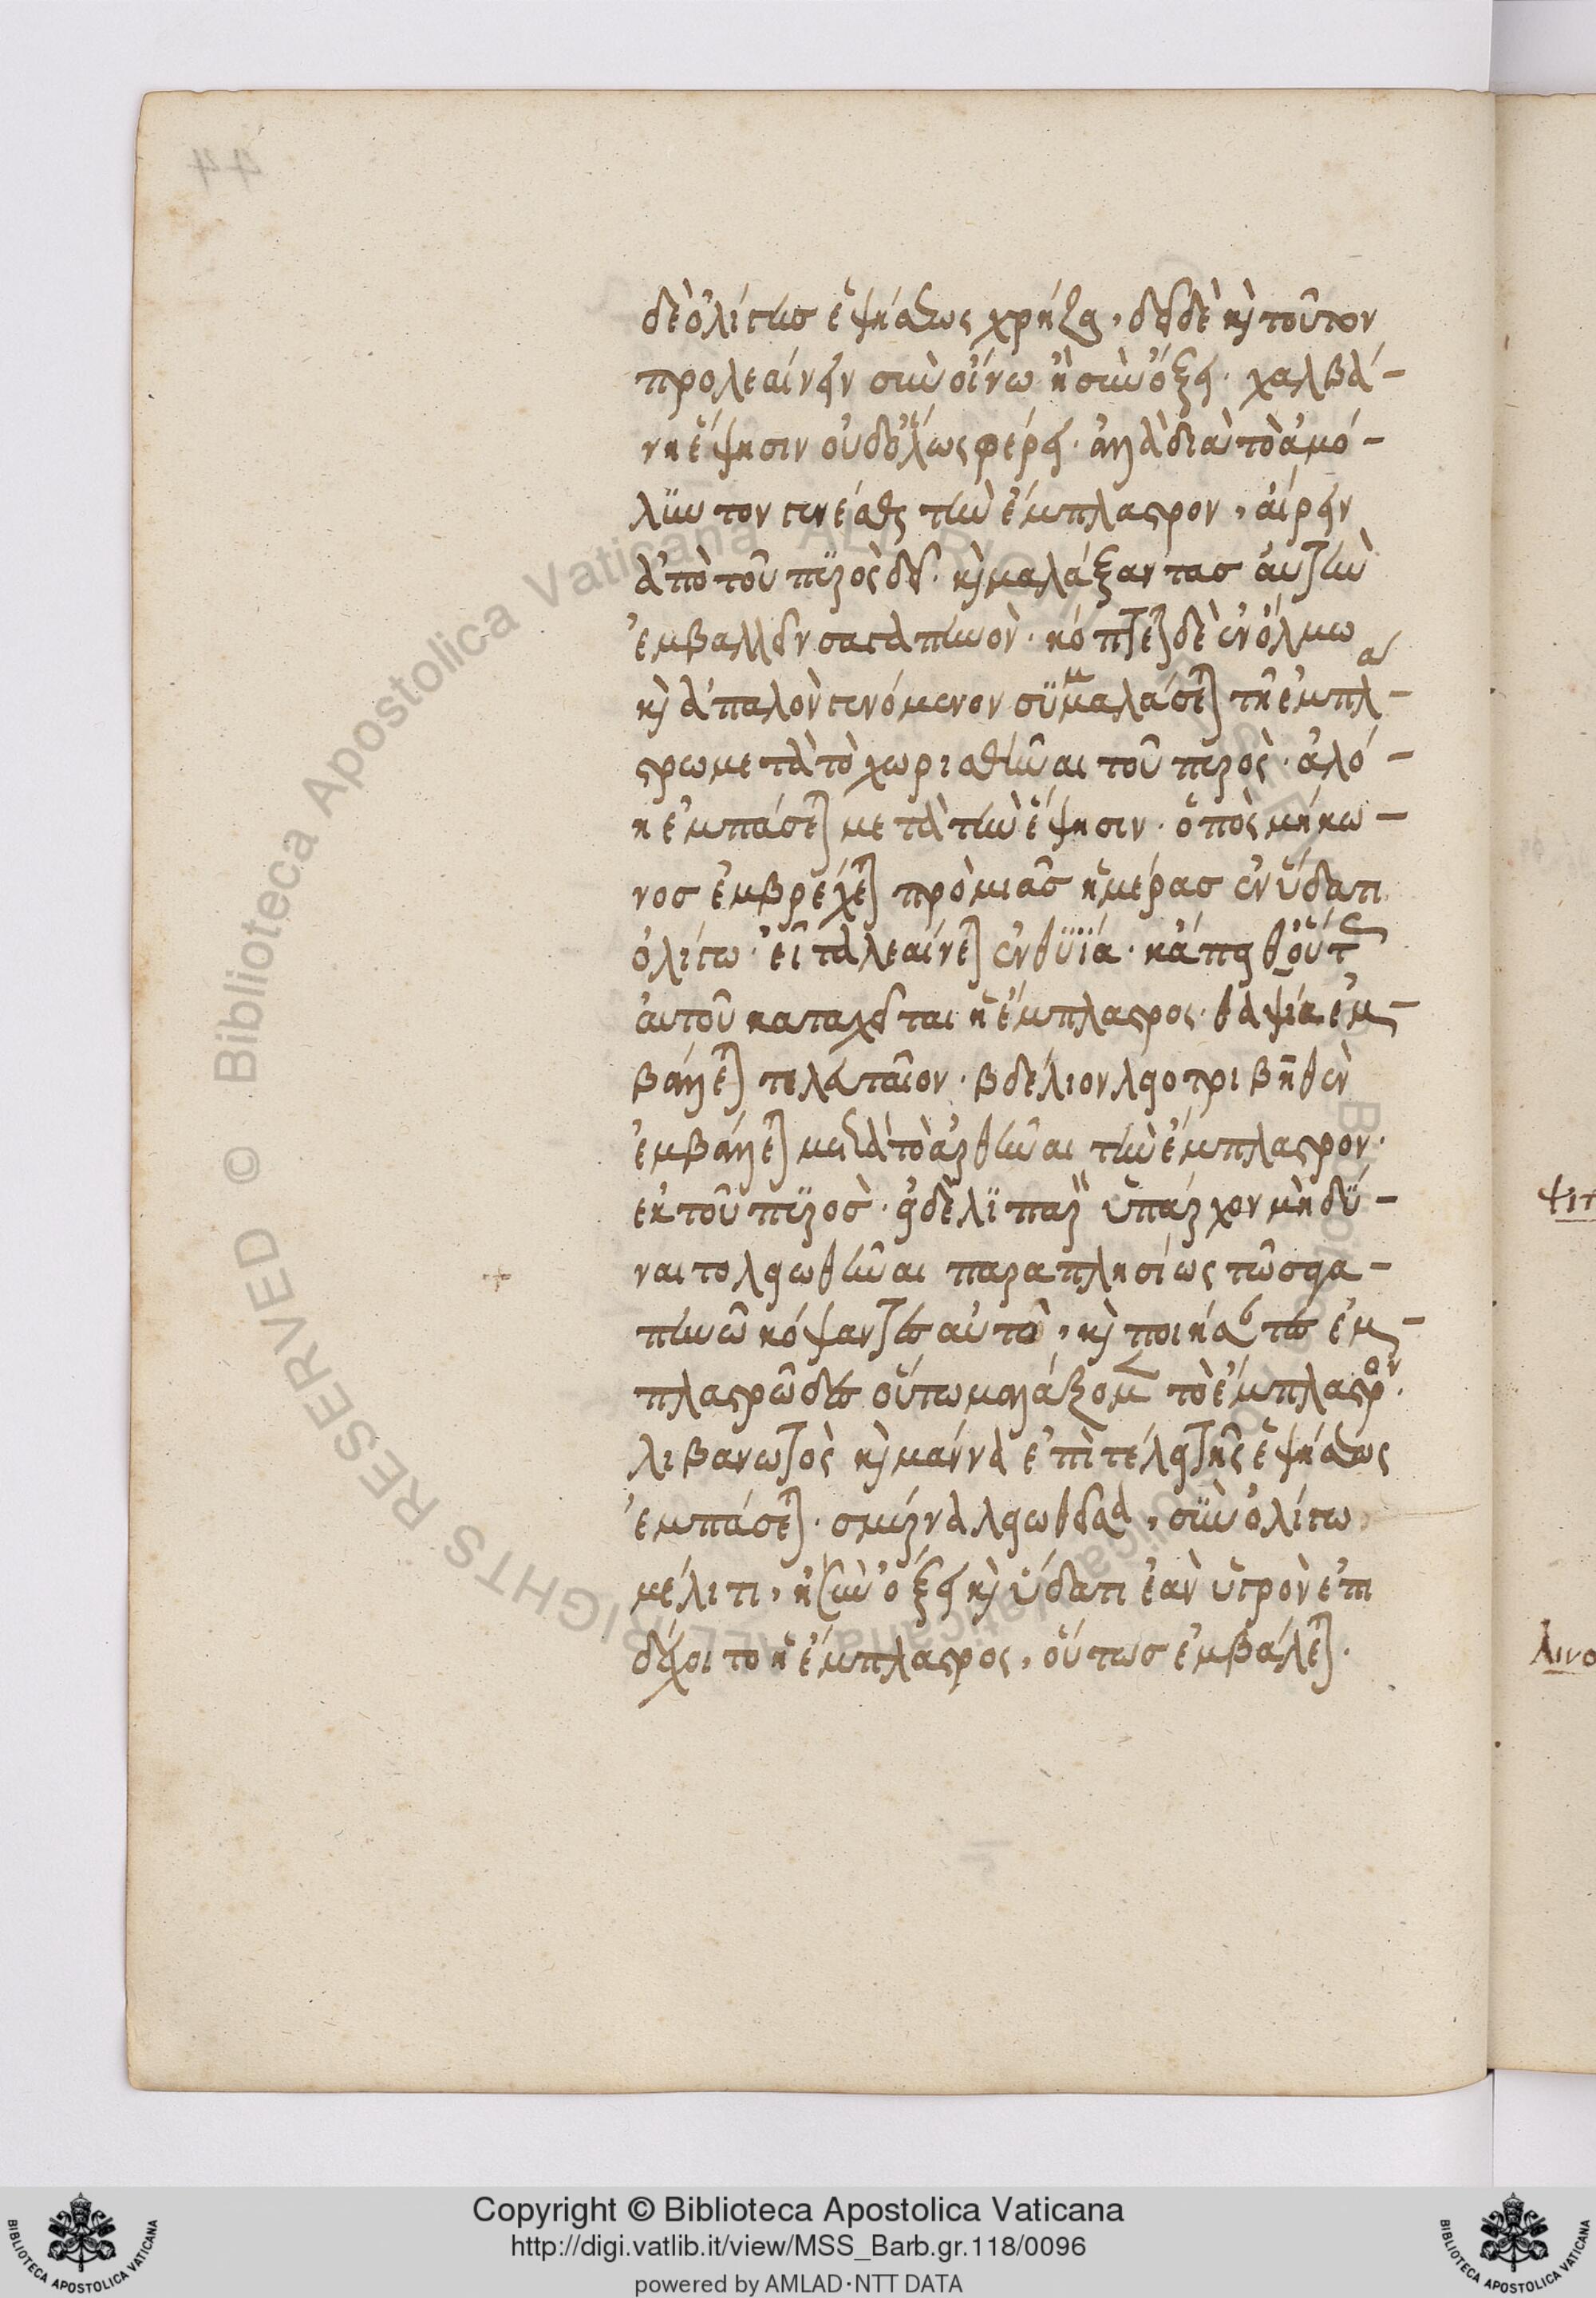 δὲ ὀλίγης ἑψήσεως χρήζει, δεῖ δὲ καὶ τοῦτον
προλεαίνειν σὺν οἴνω ἢ σὺν ὄξει· χαλβά-
νη ἕψησιν οὐδόλως φέρει· ἀλλὰ διὰ τὸ ἀμό-
λυντον γενέσθαι τὴν ἔμπλαστρον, αἴρειν
ἀπὸ τοῦ πυρὸς δεῖ· καὶ μαλάξαντας αὐτὴν
ἐμβάλλειν σαγαπηνὸν· κόπτεται δὲ ἐν ὅλμω
καὶ ἁπαλὸν γενόμενον συμμαλάσεται τῆ ἐμπλα-
στρω μετὰ τὸ χωρισθῆναι τοῦ πυρὸς· ἀλό-
η ἐμπάσεται μετὰ τὴν ἕψησιν· ὀπὸς μήκω-
νος ἐμβρέχεται πρὸ μιᾶς ἡμέρας ἐν ὕδατι
ὀλίγω· εἶτα λεαίνεται ἐν θυΐα· κἄπειθ οὕτως
αὐτοῦ καταχεῖται ἡ ἔμπλαστρος· θαψία ἐμ-
βάλλεται τελευταῖον· βδέλιον λειοτριβηθὲν
ἐμβάλλεται μετὰ τὸ ἀρθῆναι τὴν ἔμπλαστρον·
ἐκ τοῦ πυρὸς· εἰ δὲ λιπαρὸν ὑπάρχον μὴ δύ-
ναιτο λειωθῆναι παραπλησίως τῶ σαγα-
πηνῶ κόψαντες αὐτὸ, καὶ ποιήσαντες ἐμ-
πλαστρῶδες οὕτω μαλάξομεν τὸ ἔμπλαστρον·
λιβανωτὸς καὶ μάννα ἐπὶ τέλει τῆς ἑψήσεως
ἐμπάσεται· σμύρνα λειωθεῖσα, σὺν ὀλίγω
μέλιτι, ἢ σὺν ὄξει καὶ ὕδατι ἐὰν ὑγρὸν ἐπι
δέχοιτο ἡ ἔμπλαστρος, οὕτως ἐμβάλεται·
44
Copyright © Biblioteca Apostolica Vaticana
http://digi.vatlib.it/view/MSS_Barb.gr.118/0096
powered by AMLAD·NTT DATA
BIBLIOTECA APOSTOLICA VATICANA
BIBLIOTECA APOSTOLICA VATICANA